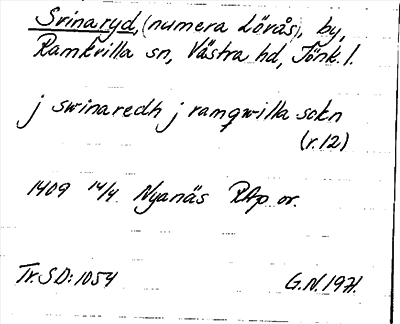 Svinaryd, (numera Lövås), by,
Ramkvilla sn, Västra hd, Jönk. l.
j swinaredh j ramqwilla sokn
(r. 12)
1409 14/4 Nyanäs RAp or.
Tr. SD: 1054 G.N. 1971.